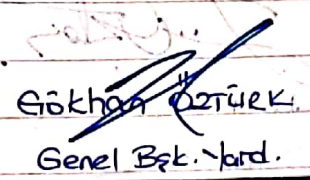 Gökhan ÖZTÜRK
Genel Bşk. Yard.